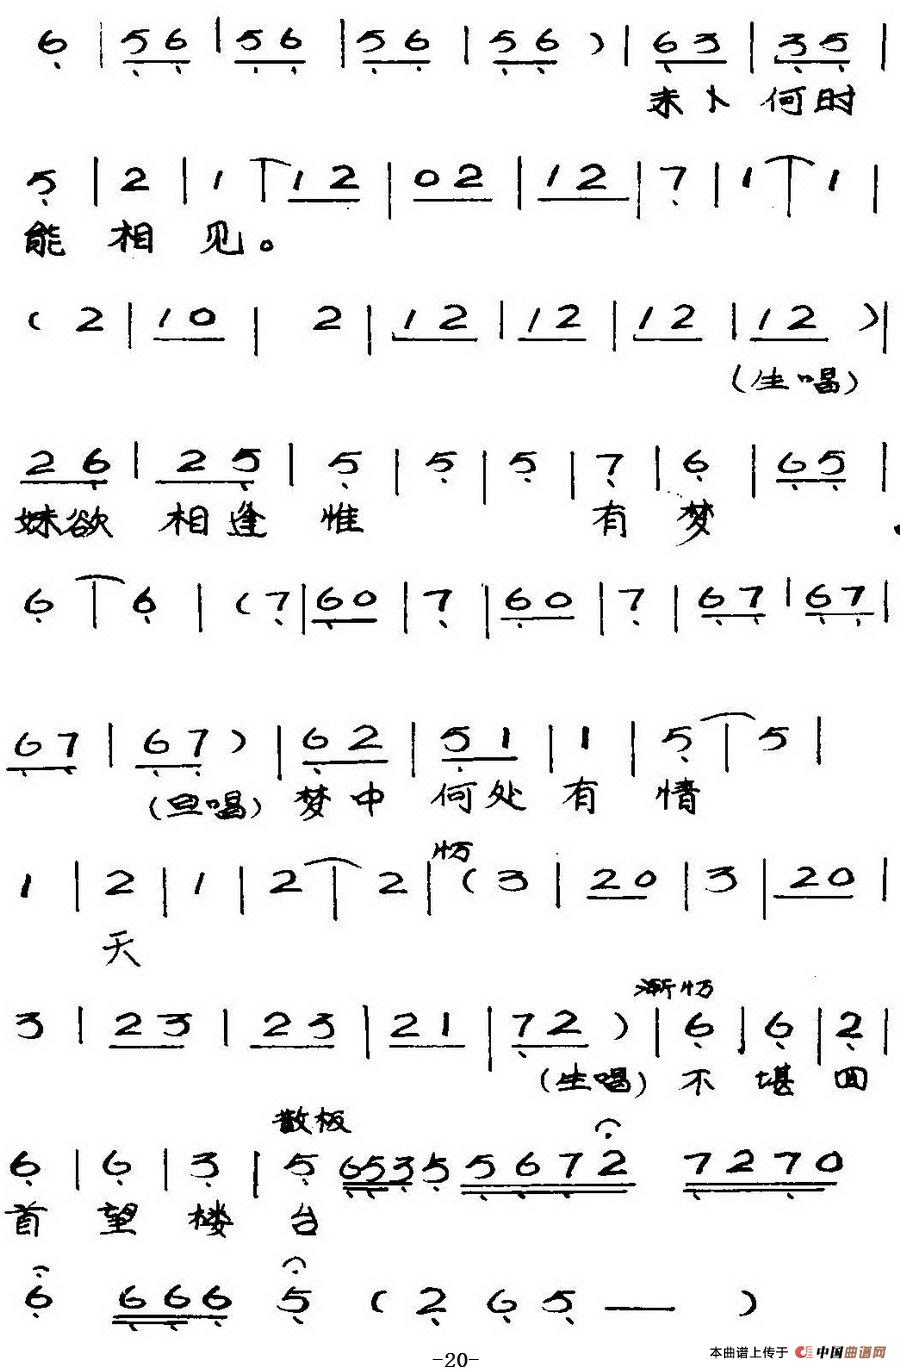 6 | 5 6 | 5 6 | 5 6 | 5 6 ) | 6 3 | 3 5 |
未卜 何时
5 | 2 | 1 | 1 2 | 0 2 | 1 2 | 7 | 1 | 1 |
能 相 见。
( 2 | 1 0 | 2 | 1 2 | 1 2 | 1 2 | 1 2 ) |
(生唱)
2 6 | 2 5 | 5 | 5 | 5 | 7 | 6 | 6 5 |
妹欲 相逢 惟 有 梦 。
6 | 6 | ( 7 | 6 0 | 7 | 6 0 | 7 | 6 7 | 6 7 |
6 7 | 6 7 ) | 6 2 | 5 1 | 1 | 5 | 5 |
(旦唱) 梦中 何处 有 情
1 | 2 | 1 | 2 | 2 | ( 3 | 2 0 | 3 | 2 0 |
天
渐
3 | 2 3 | 2 3 | 2 1 | 7 2 ) | 6 | 6 | 2 |
(生唱) 不 堪 回
散板
6 | 6 | 3 | 5 6 5 3 5 5 6 7 2 7 2 7 0
首 望 楼 台
6 6 6 6 5 ( 2 6 5 — )
-20-
本曲谱上传于 中国曲谱网